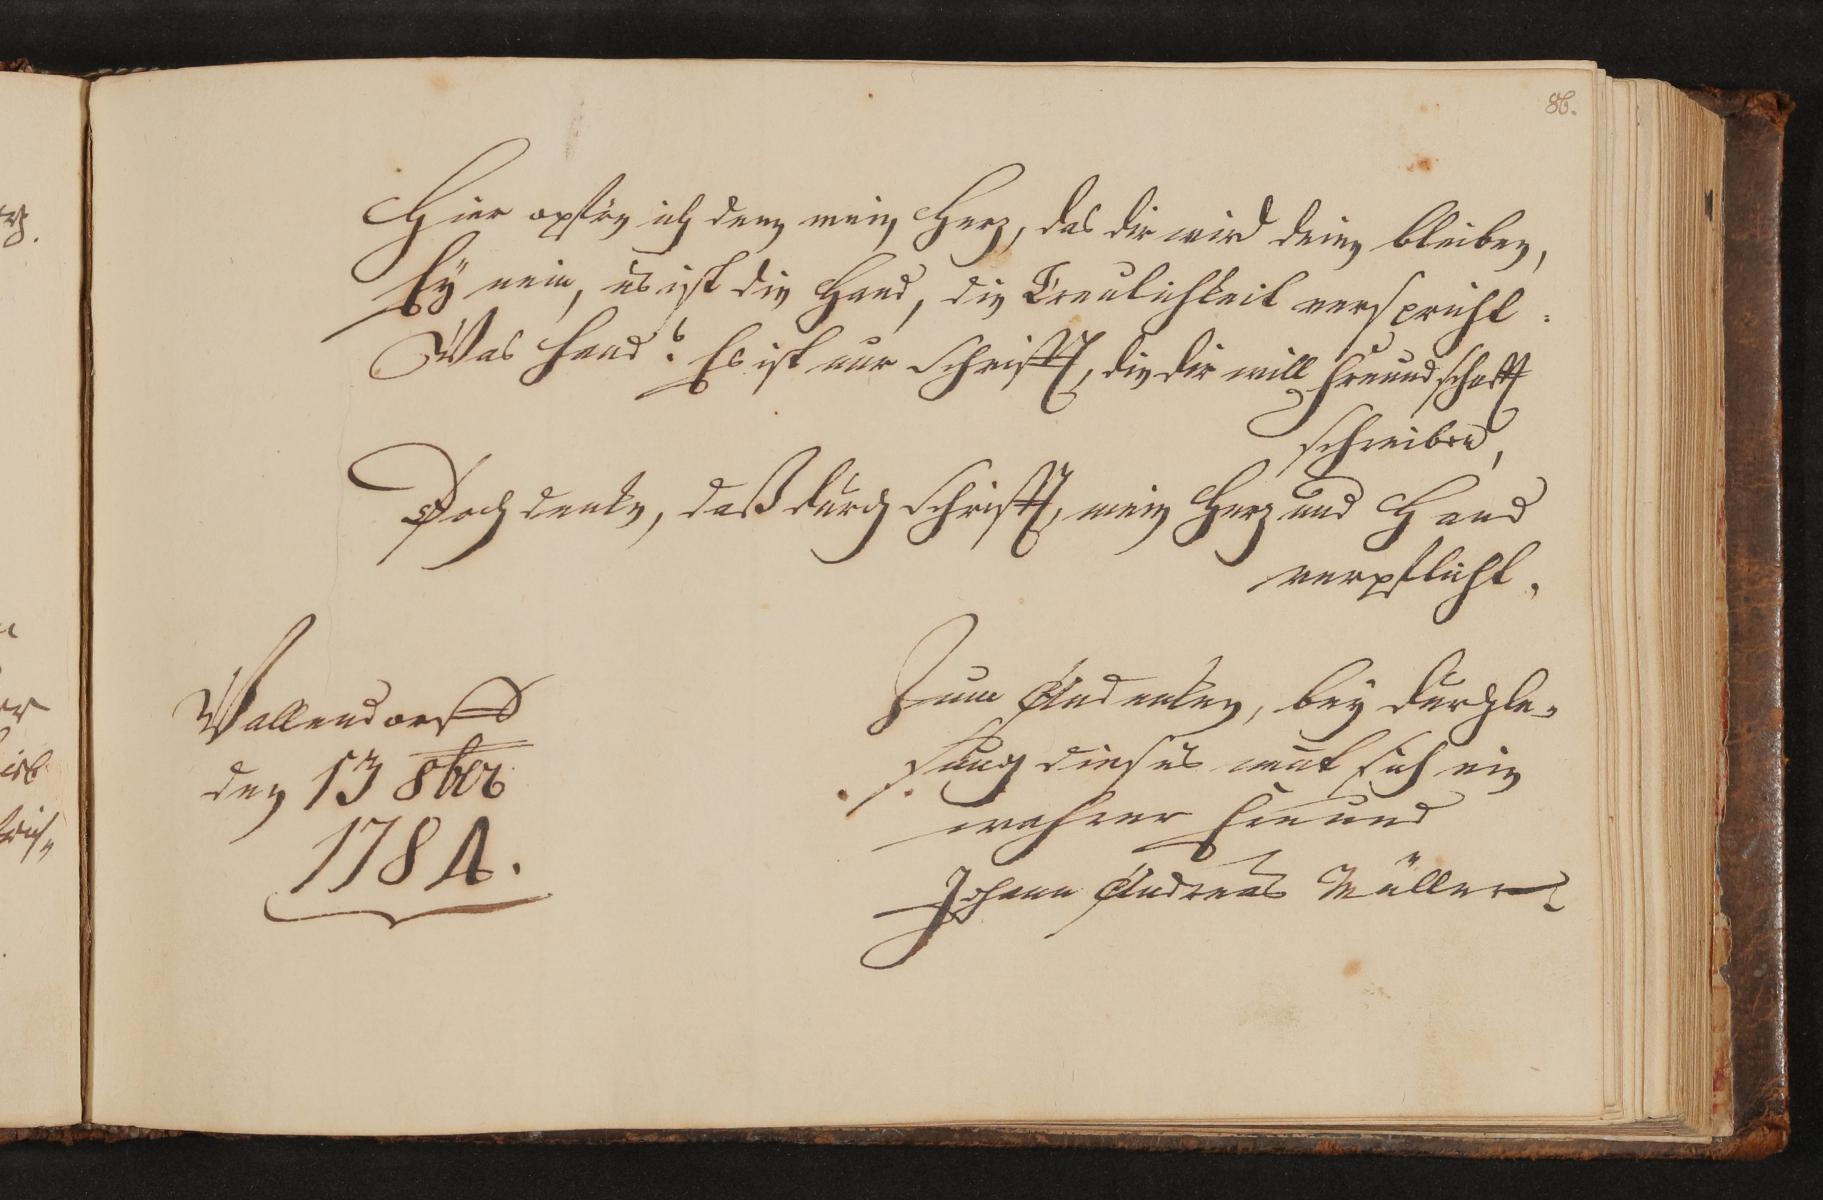 86.
Hier opfre ich denn mein Herz, das dir wird deine bleiben,
Ey nein, es ist die Hand, die Treulichkeit verspricht.
Was Hand? Es ist nur Schrifft, die dir will Freundschafft
schreiben,
Doch denke, daß durch Schrifft, mein Herz und Hand
verpflicht.
Wallendorff
den 13 8br
1784.
Zum Andenken, bey durchle-
sung dieses
sich ein
wahrer Freund
Johann Andreas Müller